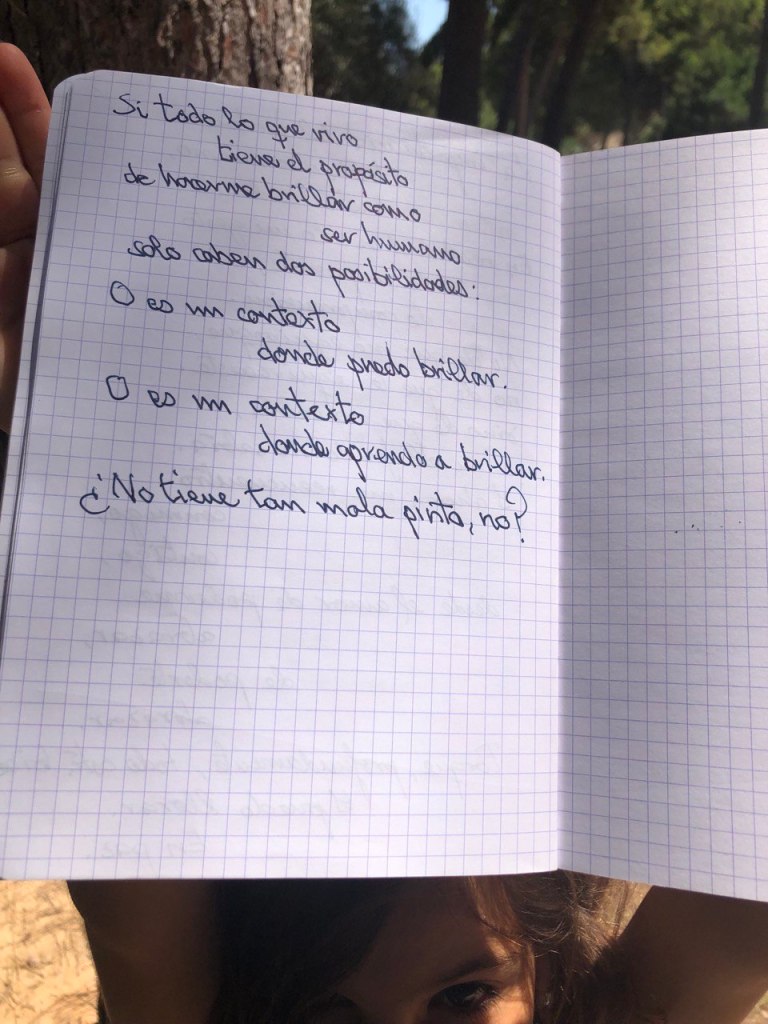 Si todo lo que vivo
tiene el propósito
de hacerme brillar como
ser humano
solo caben dos posibilidades:
O es un contexto
donde puedo brillar.
O es un contexto
donde aprendo a brillar.
¿No tiene tan mala pinta, no?